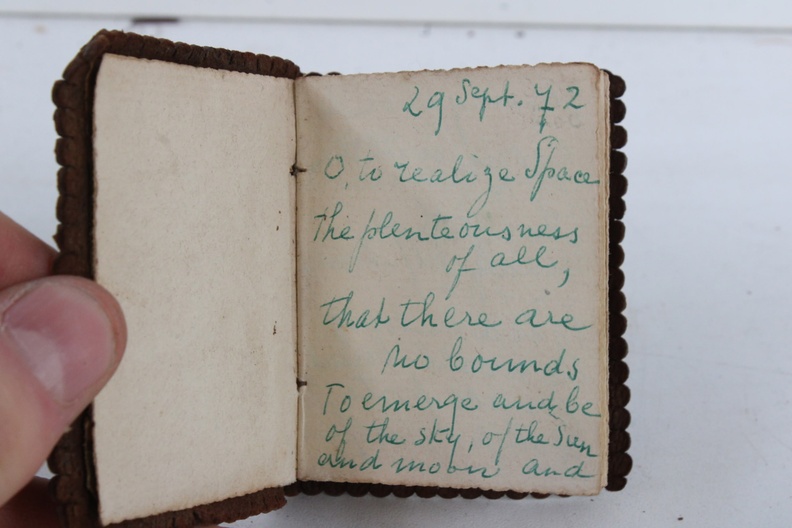 29 Sept. 72
O, to realize Space
The plenteousness
of all,
that there are
no bounds
To emerge and be
of the sky, of the Sun
and moon and